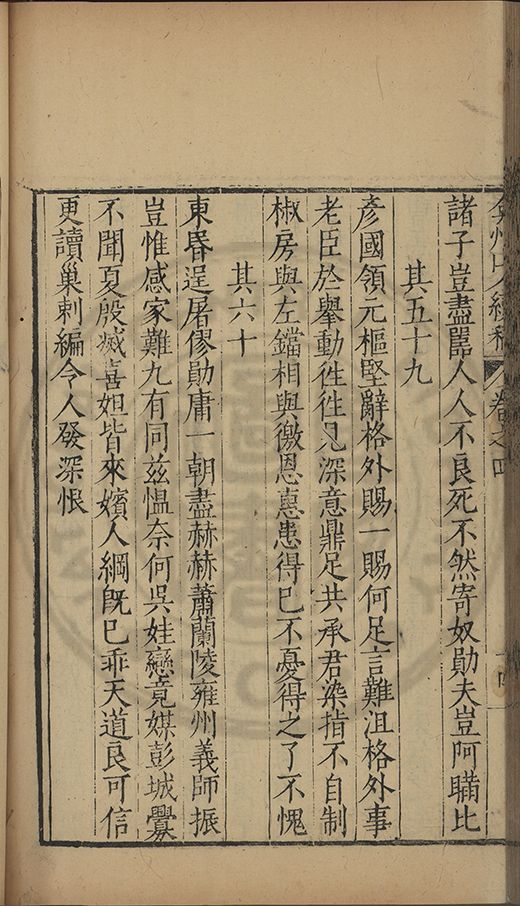 弇州山人續稿 卷之四
諸子豈盡嚚人人不良死不然寄奴勛夫豈阿瞞比
其五十九
彥國領元樞堅辭格外賜一賜何足言難沮格外事
老臣於舉動徃徃見深意鼎足共承君染指不自制
椒房與左鐺相與徼恩惠患得已不憂得之了不愧
其六十
東昏逞屠僇勛庸一朝盡赫赫蕭蘭陵雍州義師振
豈惟感家難九有同兹愠奈何吳娃戀竟媒彭城釁
不聞夏殷滅喜妲皆來嬪人綱旣已乖天道良可信
更讀巢剌編令人發深恨